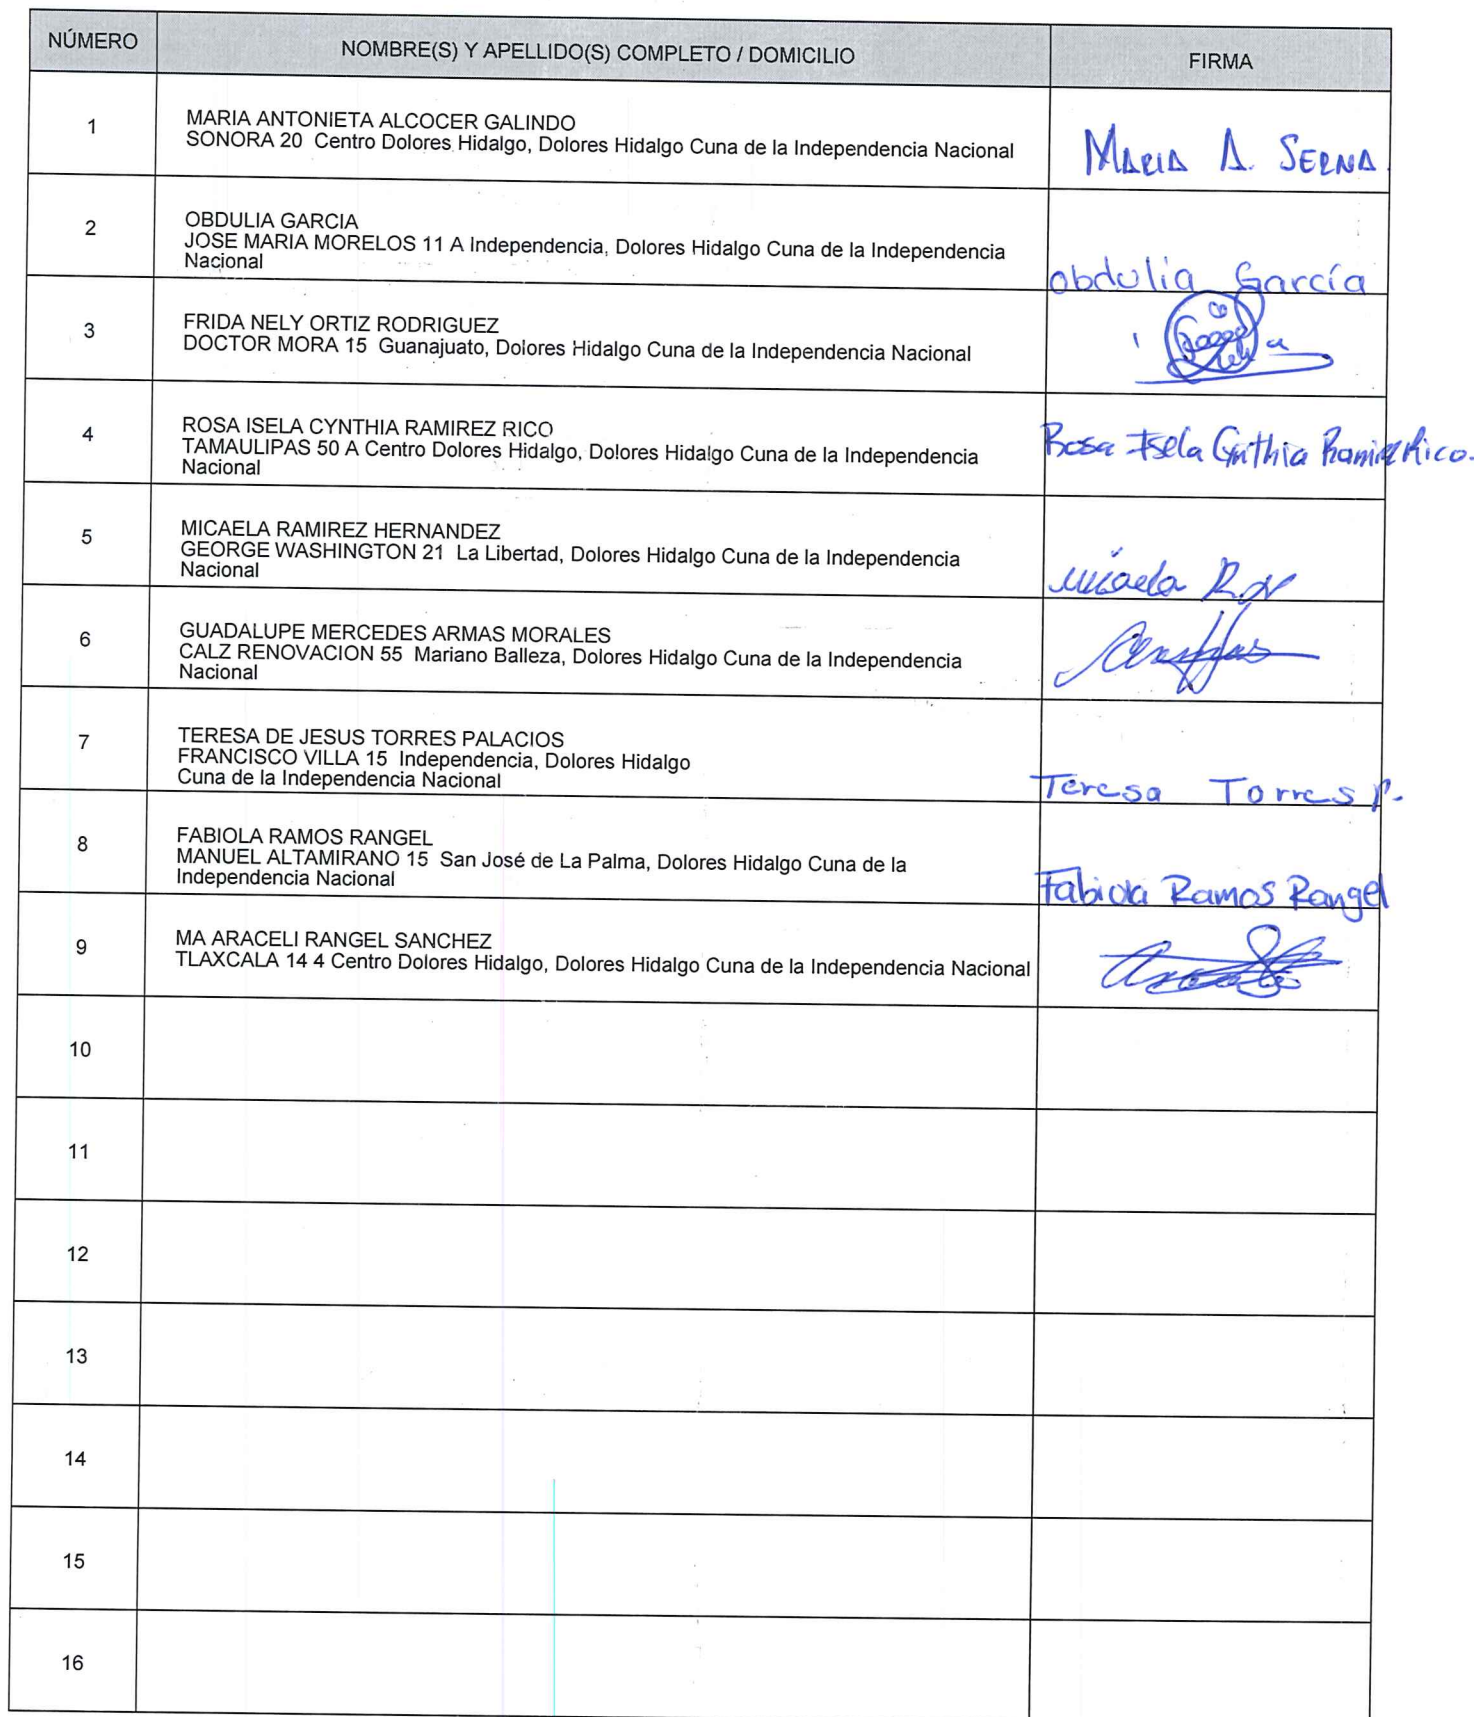 NÚMERO NOMBRE(S) Y APELLIDO(S) COMPLETO / DOMICILIO FIRMA
1 MARIA ANTONIETA ALCOCER GALINDO
SONORA 20 Centro Dolores Hidalgo, Dolores Hidalgo Cuna de la Independencia Nacional
MARIA A. SERNA.
2 OBDULIA GARCIA
JOSE MARIA MORELOS 11 A Independencia, Dolores Hidalgo Cuna de la Independencia
Nacional
obdulia García
3 FRIDA NELY ORTIZ RODRIGUEZ
DOCTOR MORA 15 Guanajuato, Dolores Hidalgo Cuna de la Independencia Nacional
4 ROSA ISELA CYNTHIA RAMIREZ RICO
TAMAULIPAS 50 A Centro Dolores Hidalgo, Dolores Hidalgo Cuna de la Independencia
Nacional
Rosa Isela Cynthia Ramirez Rico.
5 MICAELA RAMIREZ HERNANDEZ
GEORGE WASHINGTON 21 La Libertad, Dolores Hidalgo Cuna de la Independencia
Nacional
Micaela R.H
6 GUADALUPE MERCEDES ARMAS MORALES
CALZ RENOVACION 55 Mariano Balleza, Dolores Hidalgo Cuna de la Independencia
Nacional
7 TERESA DE JESUS TORRES PALACIOS
FRANCISCO VILLA 15 Independencia, Dolores Hidalgo
Cuna de la Independencia Nacional
Teresa Torres P.
8 FABIOLA RAMOS RANGEL
MANUEL ALTAMIRANO 15 San José de La Palma, Dolores Hidalgo Cuna de la
Independencia Nacional
Fabiola Ramos Rangel
9 MA ARACELI RANGEL SANCHEZ
TLAXCALA 14 4 Centro Dolores Hidalgo, Dolores Hidalgo Cuna de la Independencia Nacional
10
11
12
13
14
15
16